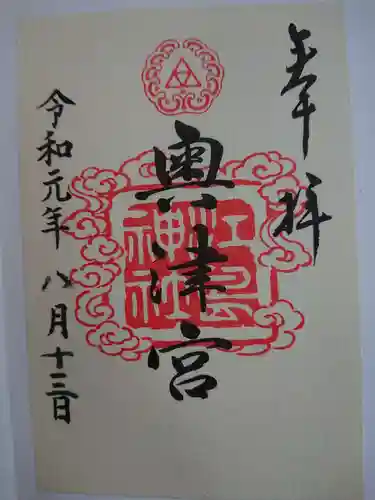 奉拝
奥津宮
江島神社
令和元年八月十三日